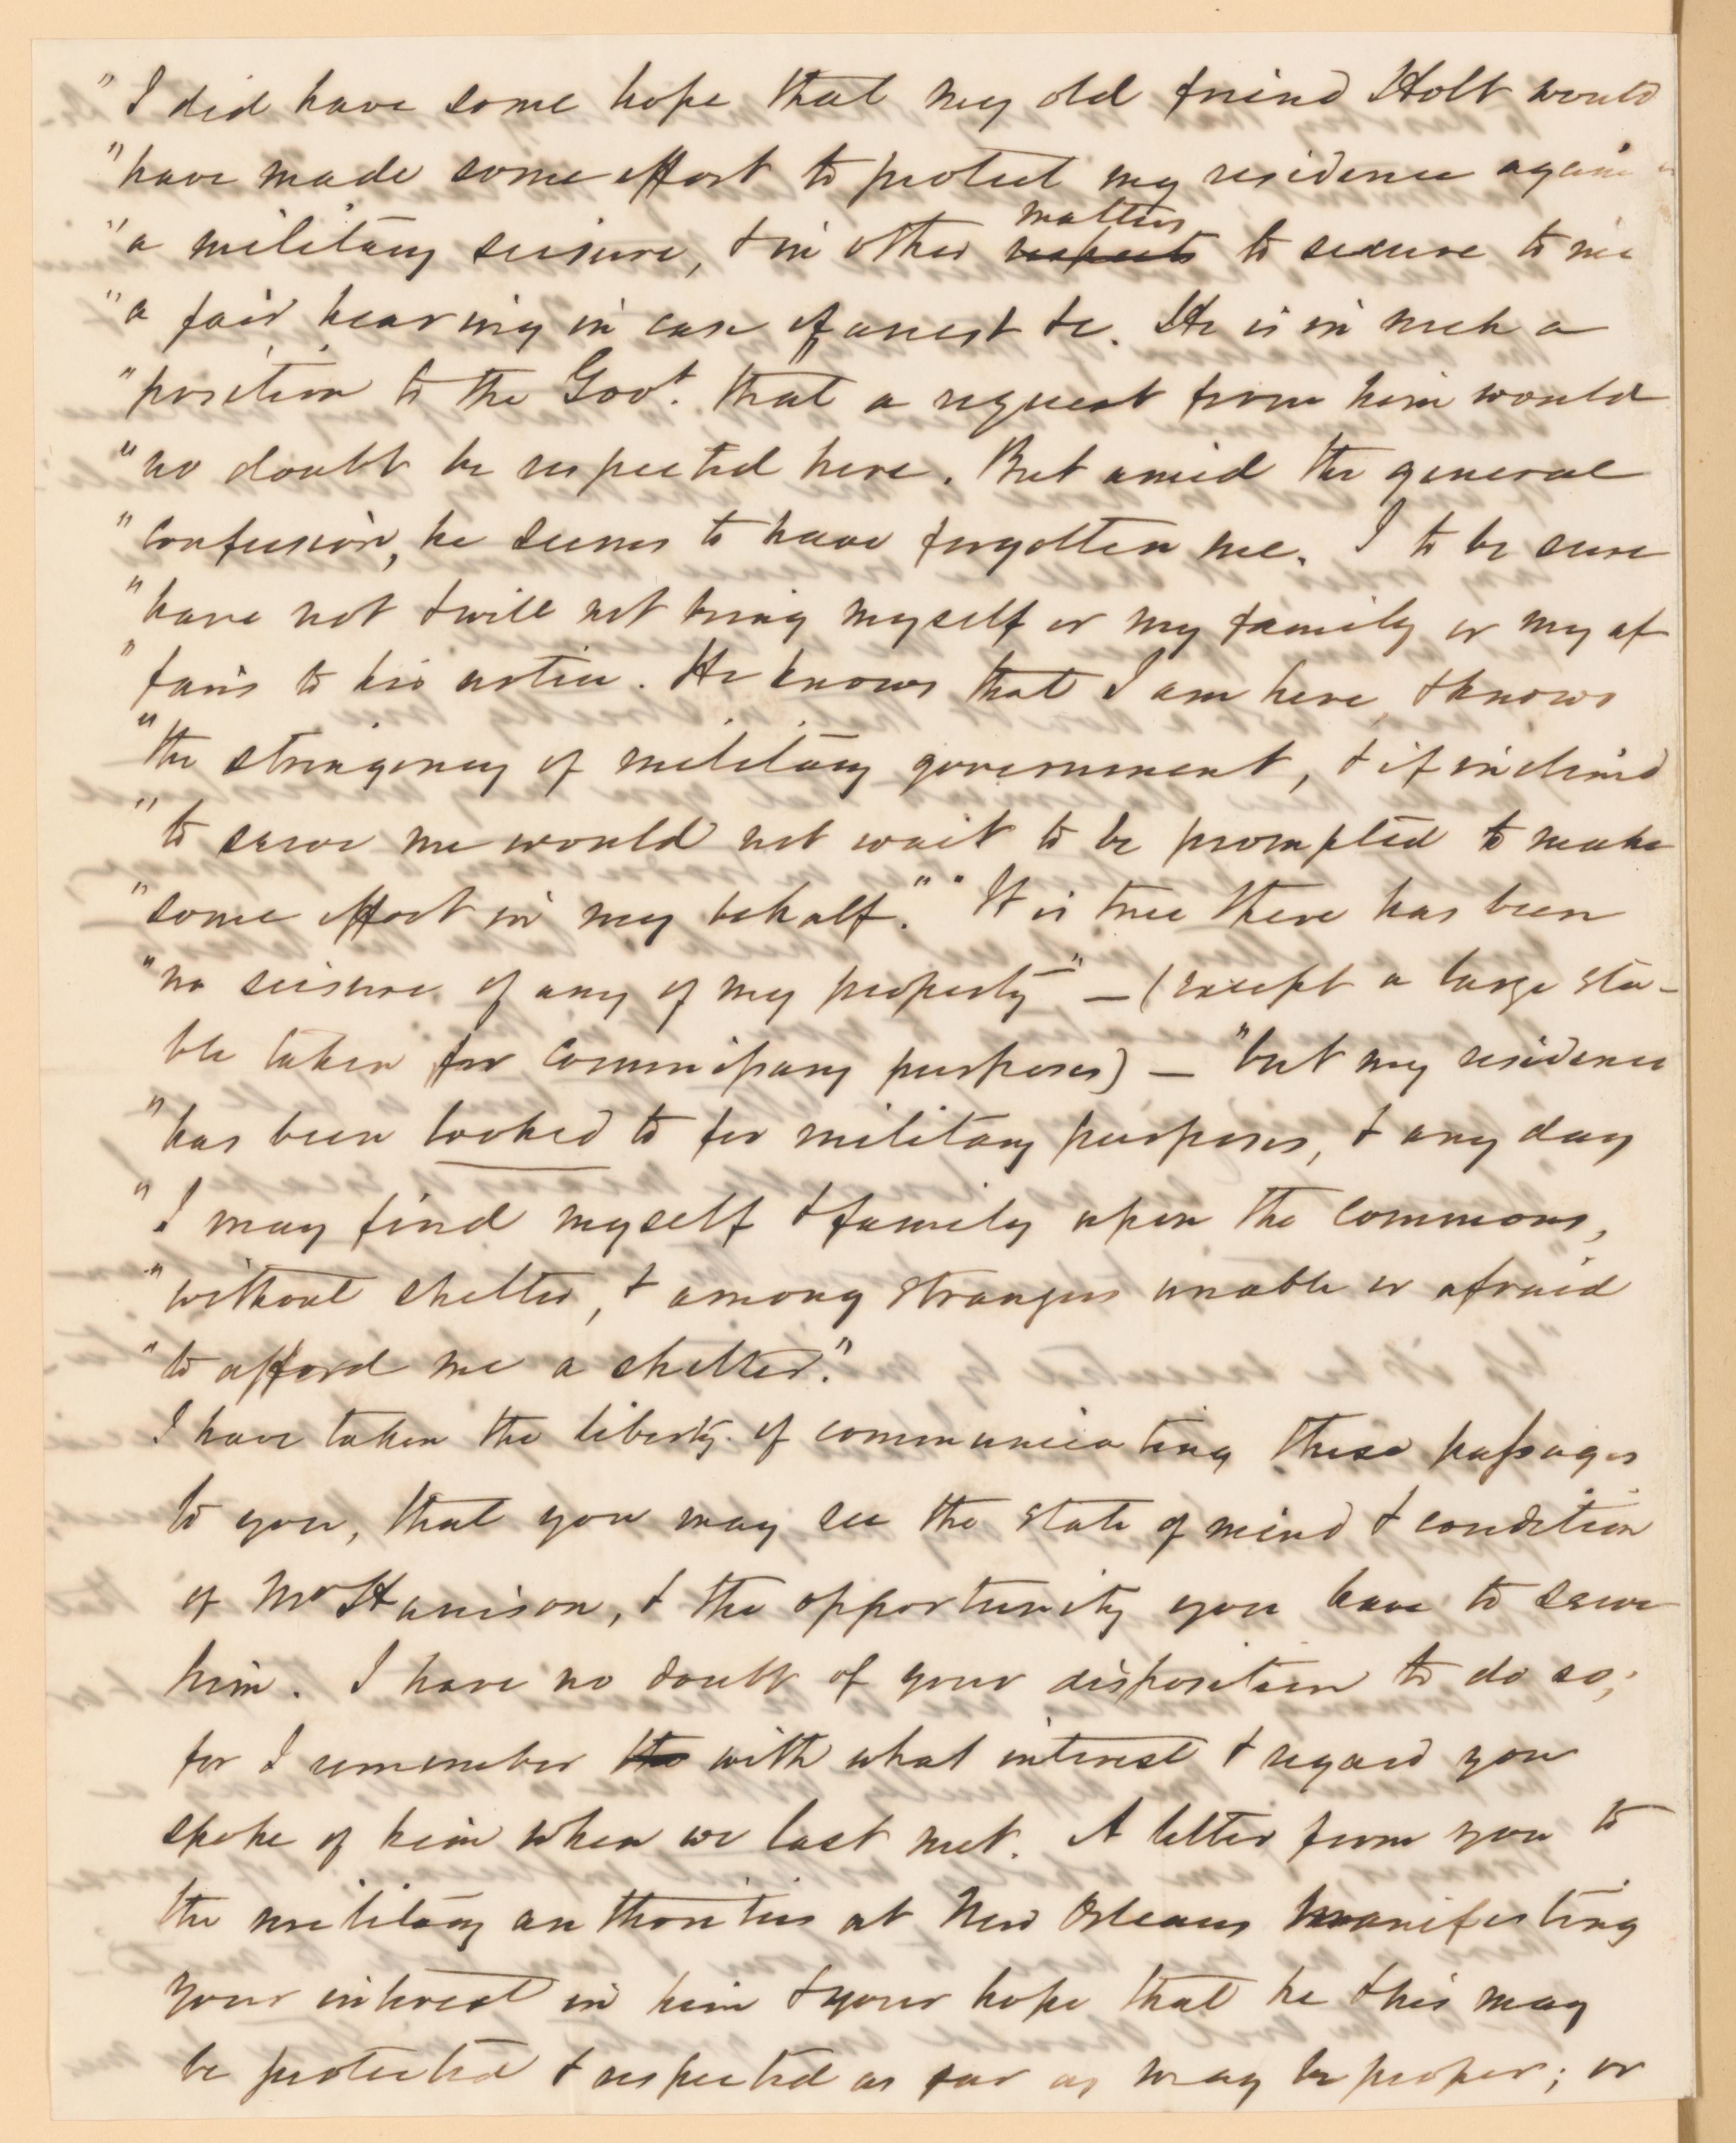 "I did have some hope that my old friend Holt would
"have made some effort to protect my residence again
"a military seisure, & in other respects matters to secure to me
"a fair hearing in case of arrest &c. He is in such a
"position to the Govt. that a request from him would
"no doubt be respected here. But amid the general
"confusion, he seems to have forgotten me. I to be sure
"have not & will not bring myself or my family or my af
"fairs to his notice. He knows that I am here, & knows
"the stringency of military government, & if inclined
"to serve me would not wait to be prompted to make
"some effort in my behalf." "It is true there has been
"no seisure of any of my property" — (except a large sta-
ble taken for commissary purposes) — "but my residence
"has been looked to for military purposes, & any day
"I may find myself & family upon the commons,
"without shelter, & among strangers unable or afraid
"to afford me a shelter."
I have taken the liberty of communicating these passages
to you, that you may see the state of mind & condition
of Mr Harrison, & the opportunity you have to serve
him. I have no doubt of your disposition to do so;
for I remember the with what interest & regard you
spoke of him when we last met. A letter from you to
the military authorities at New Orleans manifesting
your interest in him & your hope that he & his may
be protected & respected as far as may be proper; or